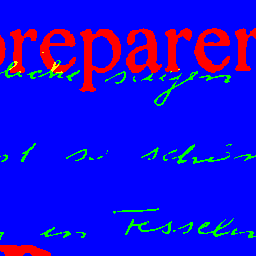 preparer
liche sagen
ist so schön
in Fesseln